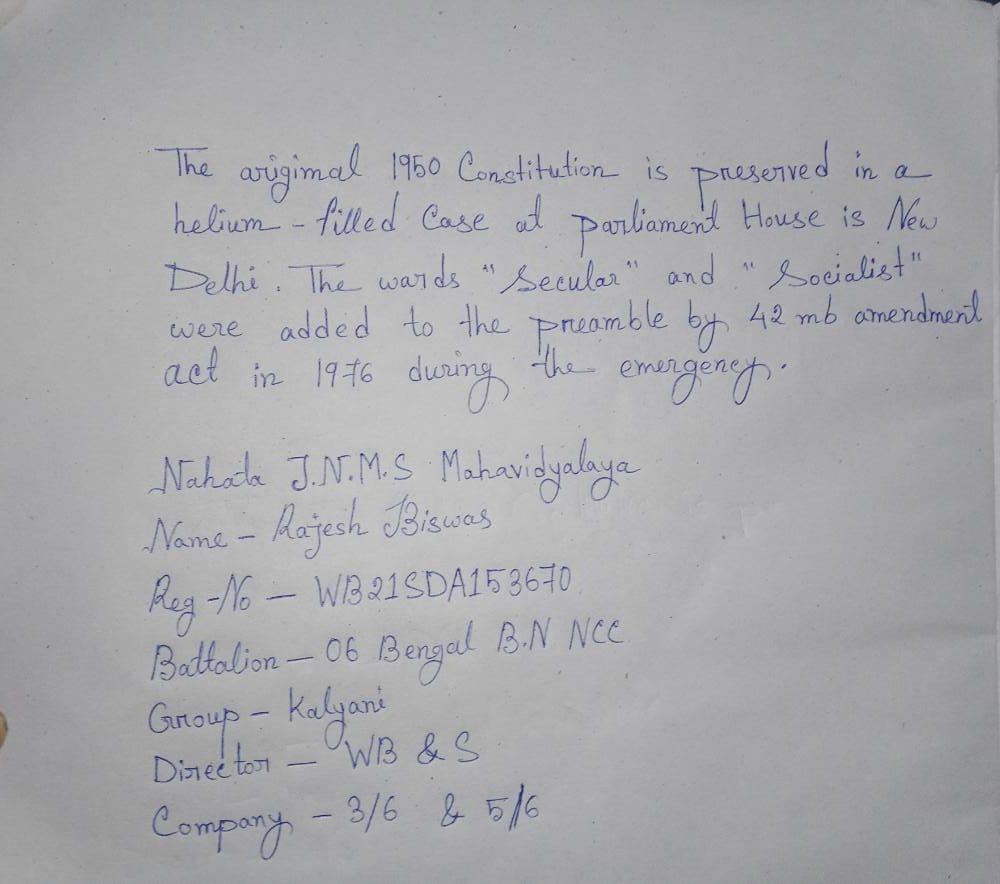 The arigimal 1950 Constitution is preserved in a
helium - filled Case at parliament House is New
Delhi. The wards "Secular" and "Socialist"
were added to the preamble by 42 mb amendment
act in 1976 during the emergency.
Nahata J.N.M.S Mahavidyalaya
Name - Rajesh Biswas
Reg-No - WB21SDA153670
Battalion - 06 Bengal B.N NCC
Group - Kalyani
Director - WB & S
Company - 3/6 & 5/6